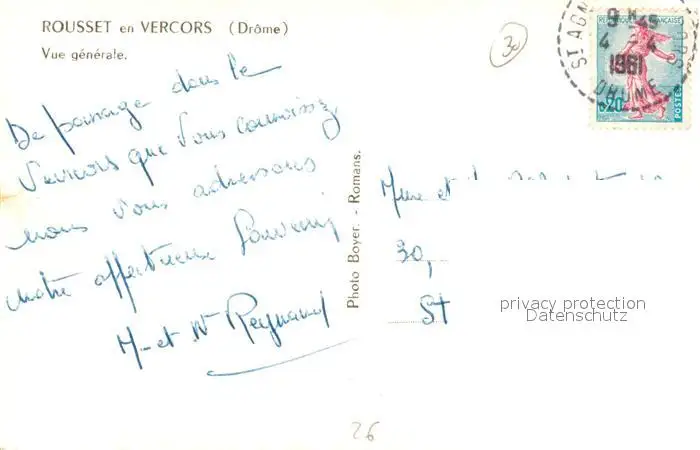 ROUSSET en VERCORS (Drôme)
Vue générale.
De passage dans le
Vercors que vous connaissez,
nous vous adressons
notre affectueux souvenir
M. et Me Reynaud
Photo Boyer. - Romans.
30
ST AGN
9 H 45
4 - 4
1961
DROME
REPUBLIQUE FRANÇAISE
0,20
POSTES
Mme et
30,
St
privacy protection
Datenschutz
26